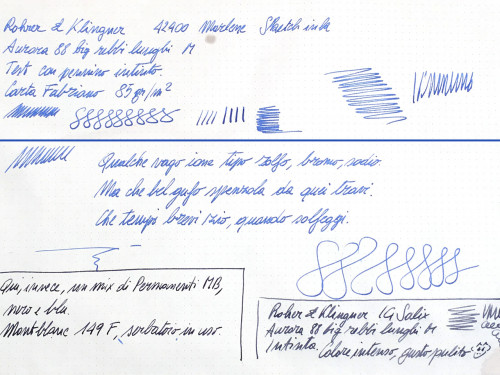 Rohrer & Klingner 42400 Marlene Sketch ink
Aurora 88 big rebbi lunghi M
Test con pennino intinto.
Carta Fabriano 85 gr/m²
Qualche vago ione tipo zolfo, bromo, sodio.
Ma che bel gufo spenzola da quei travi.
Che tempi brevi zio, quando solfeggi.
Qui, invece, un mix di Permanenti MB,
nero e blu.
Montblanc 149 F, serbatoio in uso.
Rohrer & Klingner IG Salix
Aurora 88 big rebbi lunghi M
Intinta. Colore intenso, gusto pulito